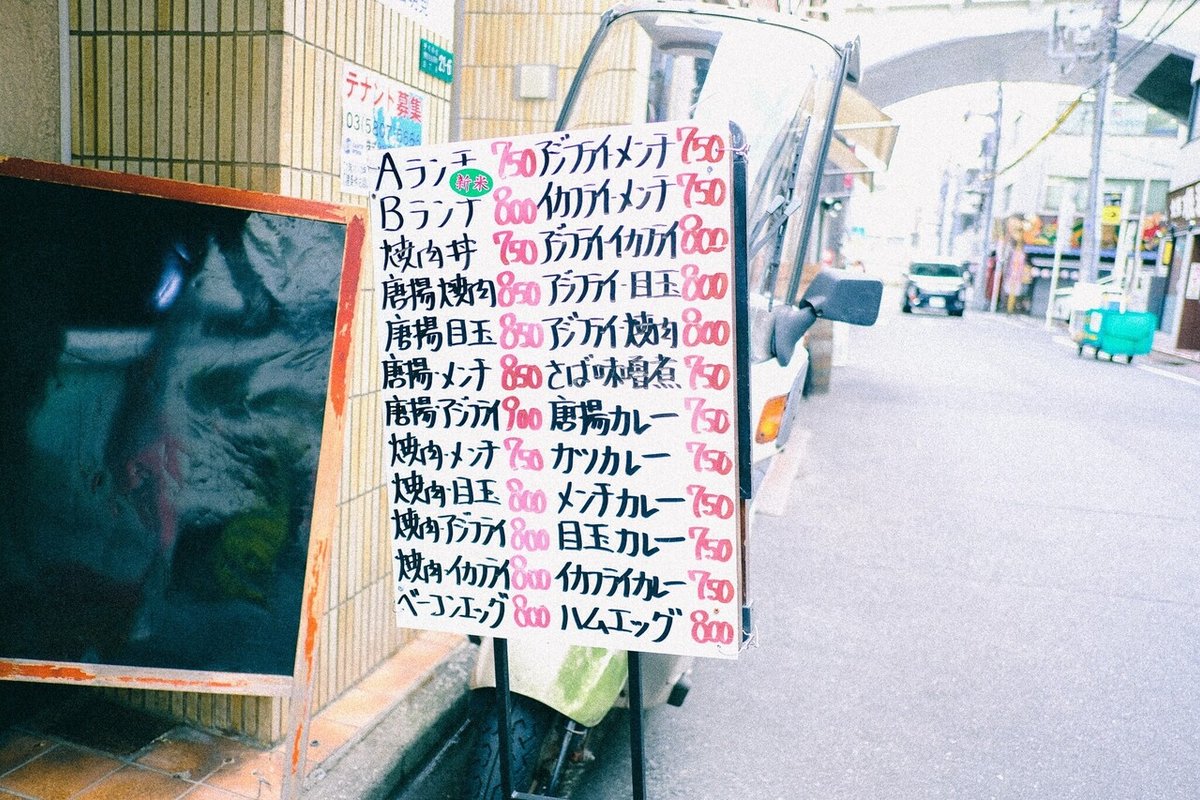 テナント募集
21-6
Aランチ 750
新米
Bランチ 800
焼肉丼 750
唐揚焼肉 850
唐揚目玉 850
唐揚・メンチ 850
唐揚アジフライ 900
焼肉・メンチ 750
焼肉・目玉 800
焼肉・アジフライ 800
焼肉・イカフライ 800
ベーコンエッグ 800
アジフライ・メンチ 750
イカフライ・メンチ 750
アジフライイカフライ 800
アジフライ・目玉 800
アジフライ・焼肉 800
さば味噌煮 750
唐揚カレー 750
カツカレー 750
メンチカレー 750
目玉カレー 750
イカフライカレー 750
ハムエッグ 800